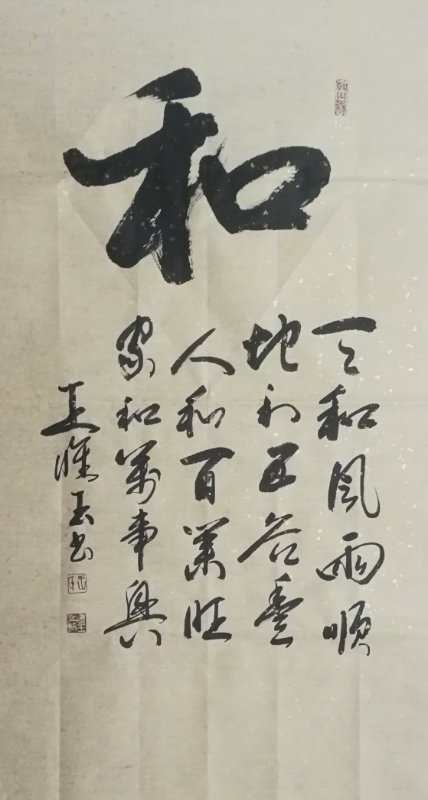 和
天和風雨順
地利五谷豐
人和百業旺
家和萬事興
玉書